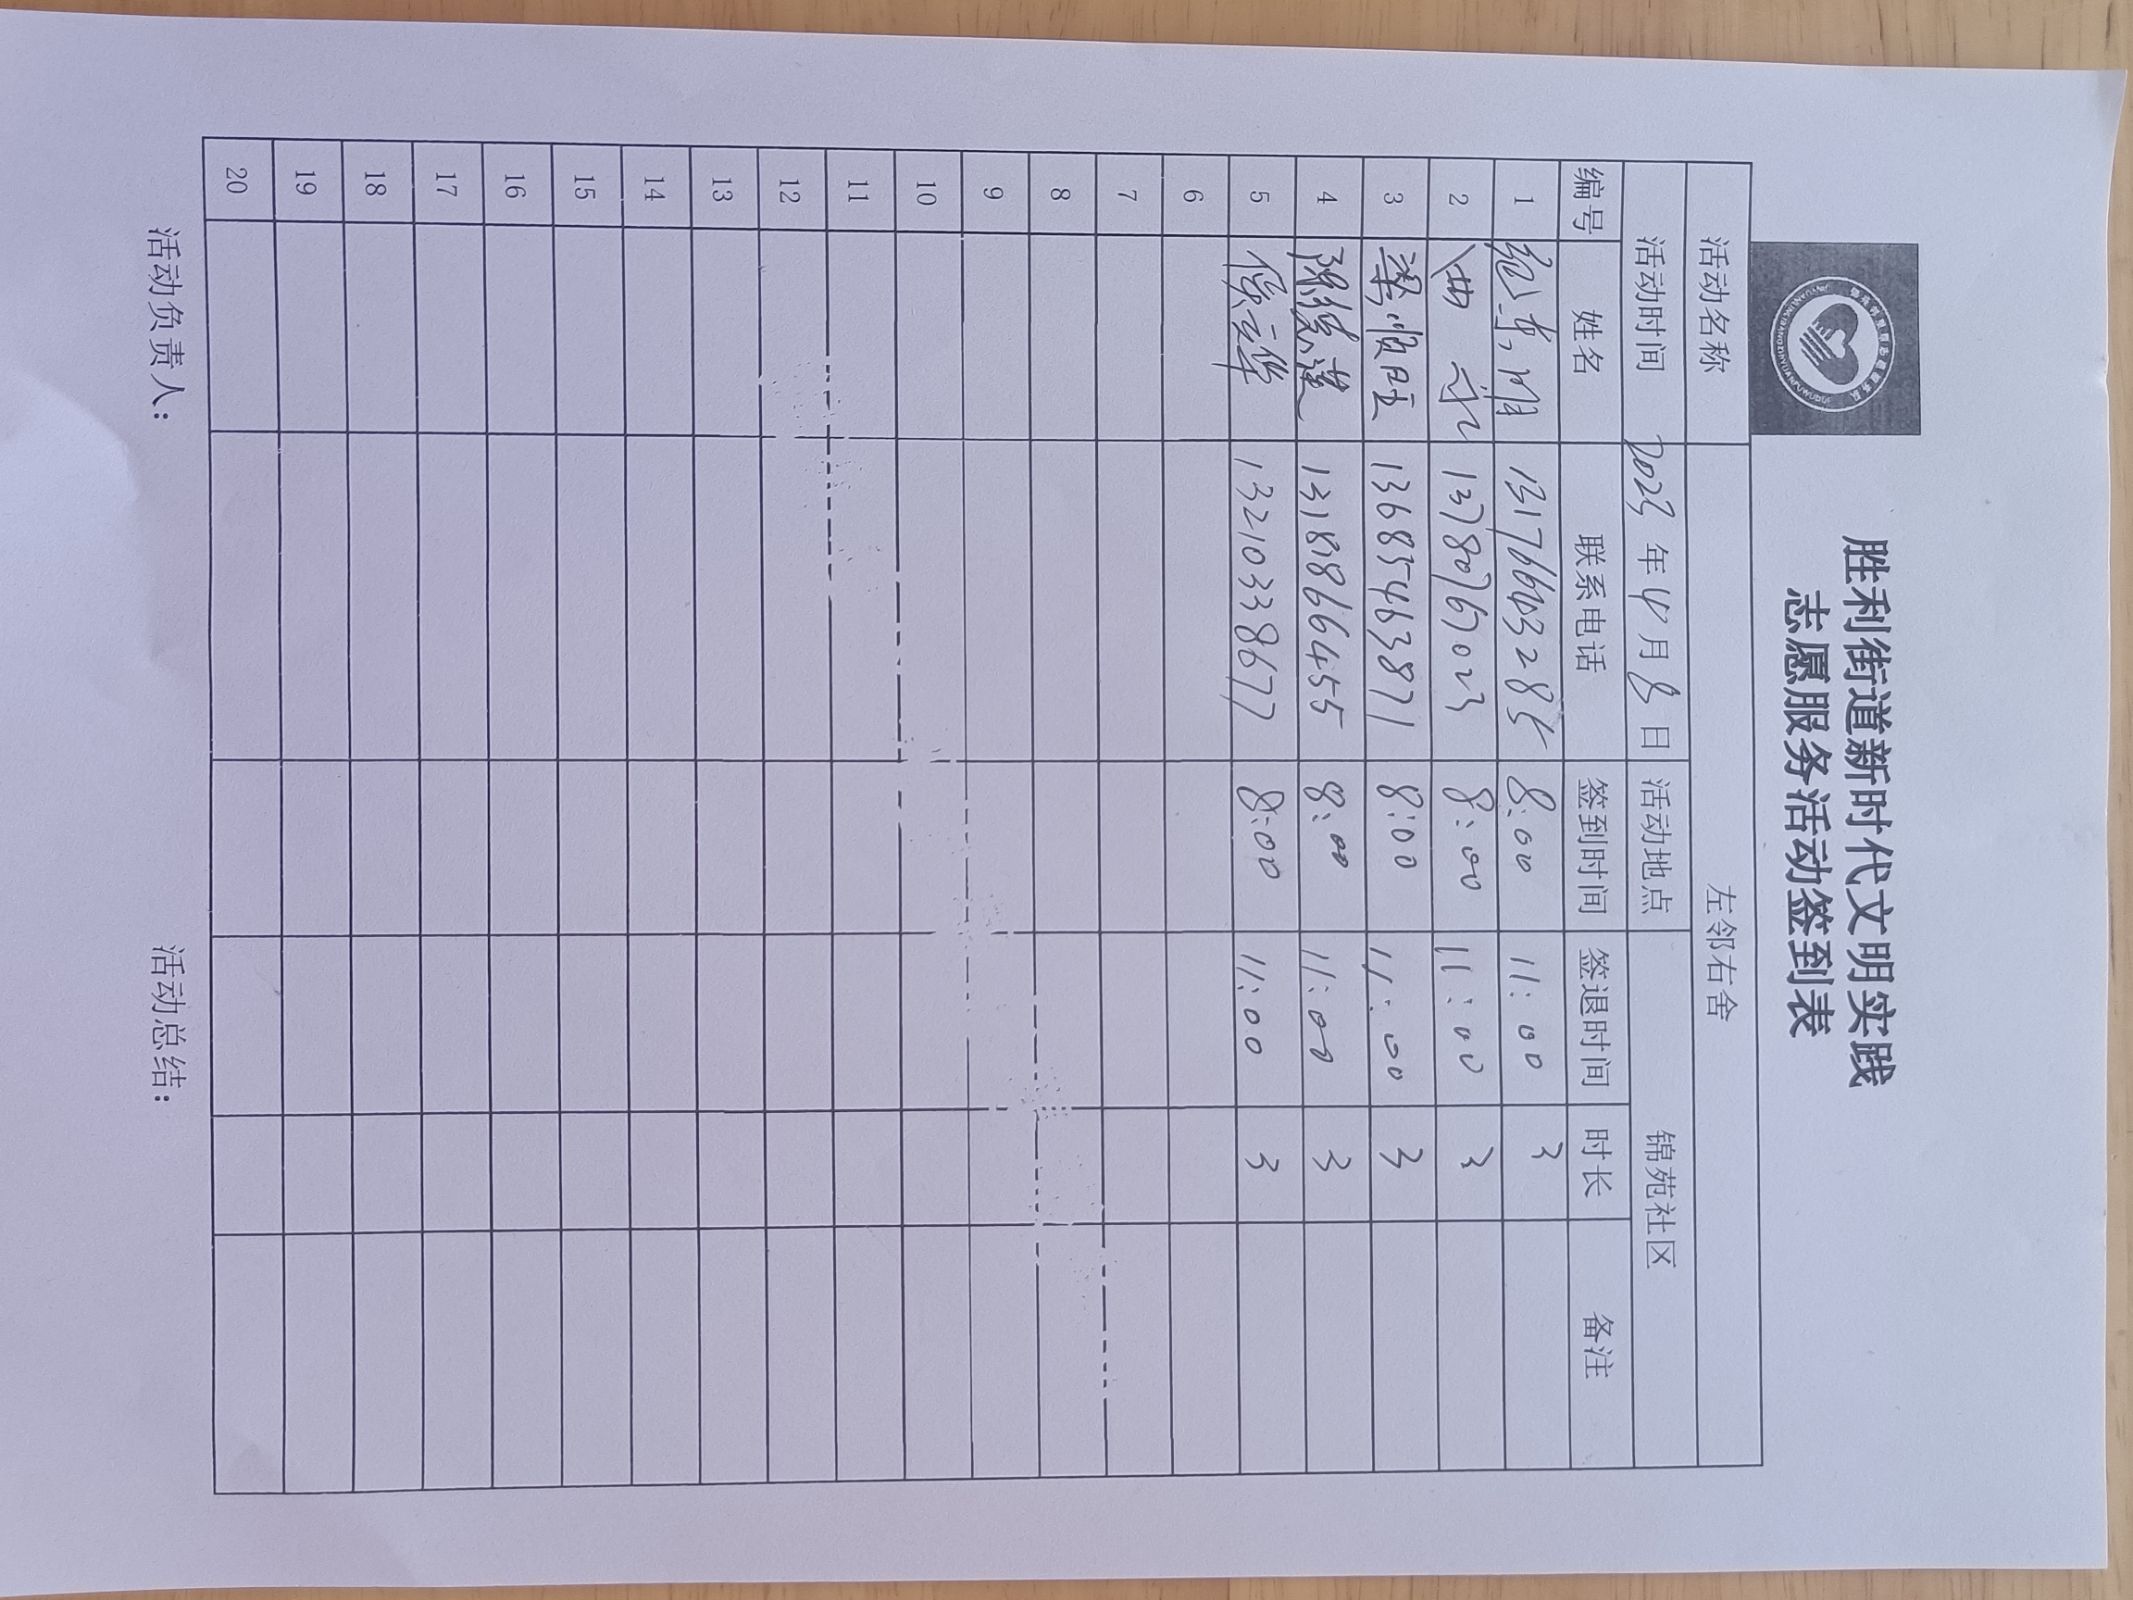 胜利街道新时代文明实践
志愿服务活动签到表
活动名称 左邻右舍
活动时间 2023 年 4 月 8 日 活动地点 锦苑社区
编号 姓名 联系电话 签到时间 签退时间 时长 备注
1 8:00 11:00 3
2 曲 13780767023 8:00 11:00 3
3 梁顺旺 13685463871 8:00 11:00 3
4 陈俊莲 13181866455 8:00 11:00 3
5 侯云华 13210338677 8:00 11:00 3
6
7
8
9
10
11
12
13
14
15
16
17
18
19
20
活动负责人： 活动总结：